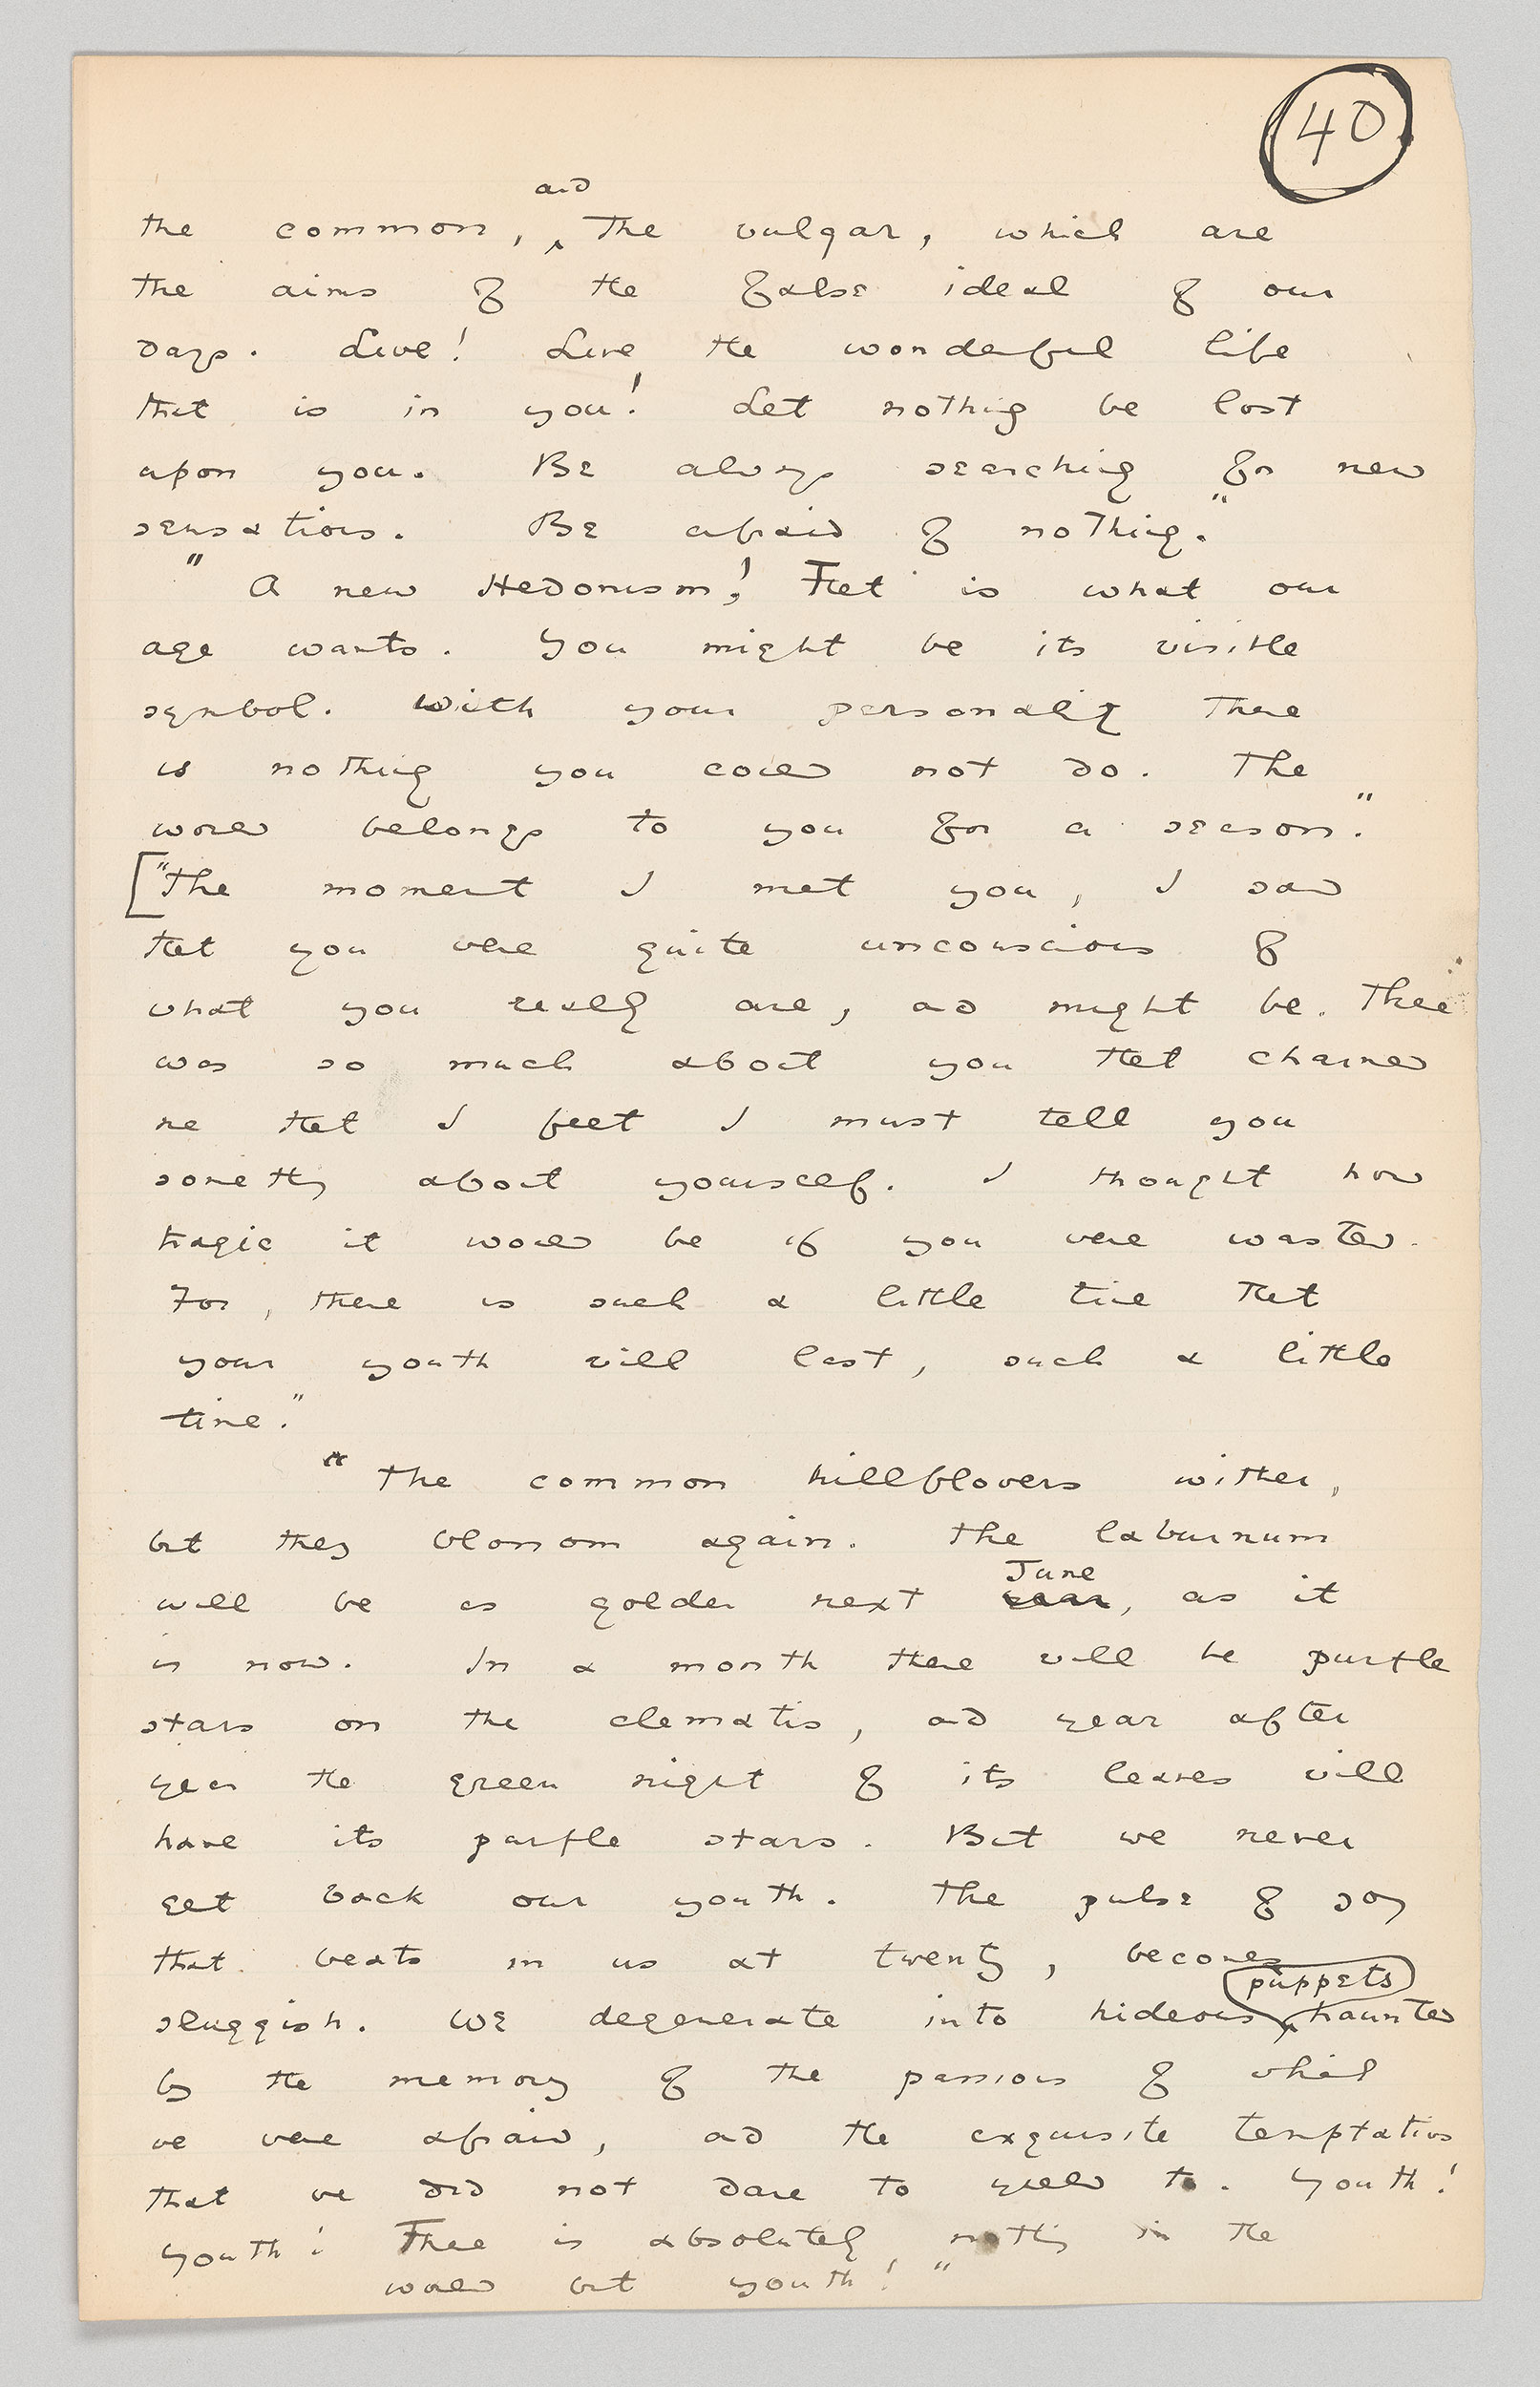 40
and
the common, ‸ the vulgar, which are
the aims of the false ideal of our
days. Live! Live the wonderful life
that is in you! Let nothing be lost
upon you. Be always searching for new
sensations. Be afraid of nothing."
" A new Hedonism! That is what our
age wants. You might be its visible
symbol. With your personality there
is nothing you could not do. The
world belongs to you for a season."
["The moment I met you, I saw
that you were quite unconscious of
what you really are, and might be. There
was so much about you that charmed
me that I felt I must tell you
something about yourself. I thought how
tragic it would be if you were wasted.
For, there is such a little time that
your youth will last, such a little
time."
" The common hillflowers wither,
but they blossom again. The laburnum
June
will be as golden next year, as it
is now. In a month there will be purple
stars on the clematis, and year after
year the green night of its leaves will
have its purple stars. But we never
get back our youth. The pulse of joy
that beats in us at twenty, becomes
puppets
sluggish. We degenerate into hideous ‸ haunted
by the memory of the passions of which
we were afraid, and the exquisite temptations
that we did not dare to yield to. Youth!
Youth! There is absolutely nothing in the
world but youth! "